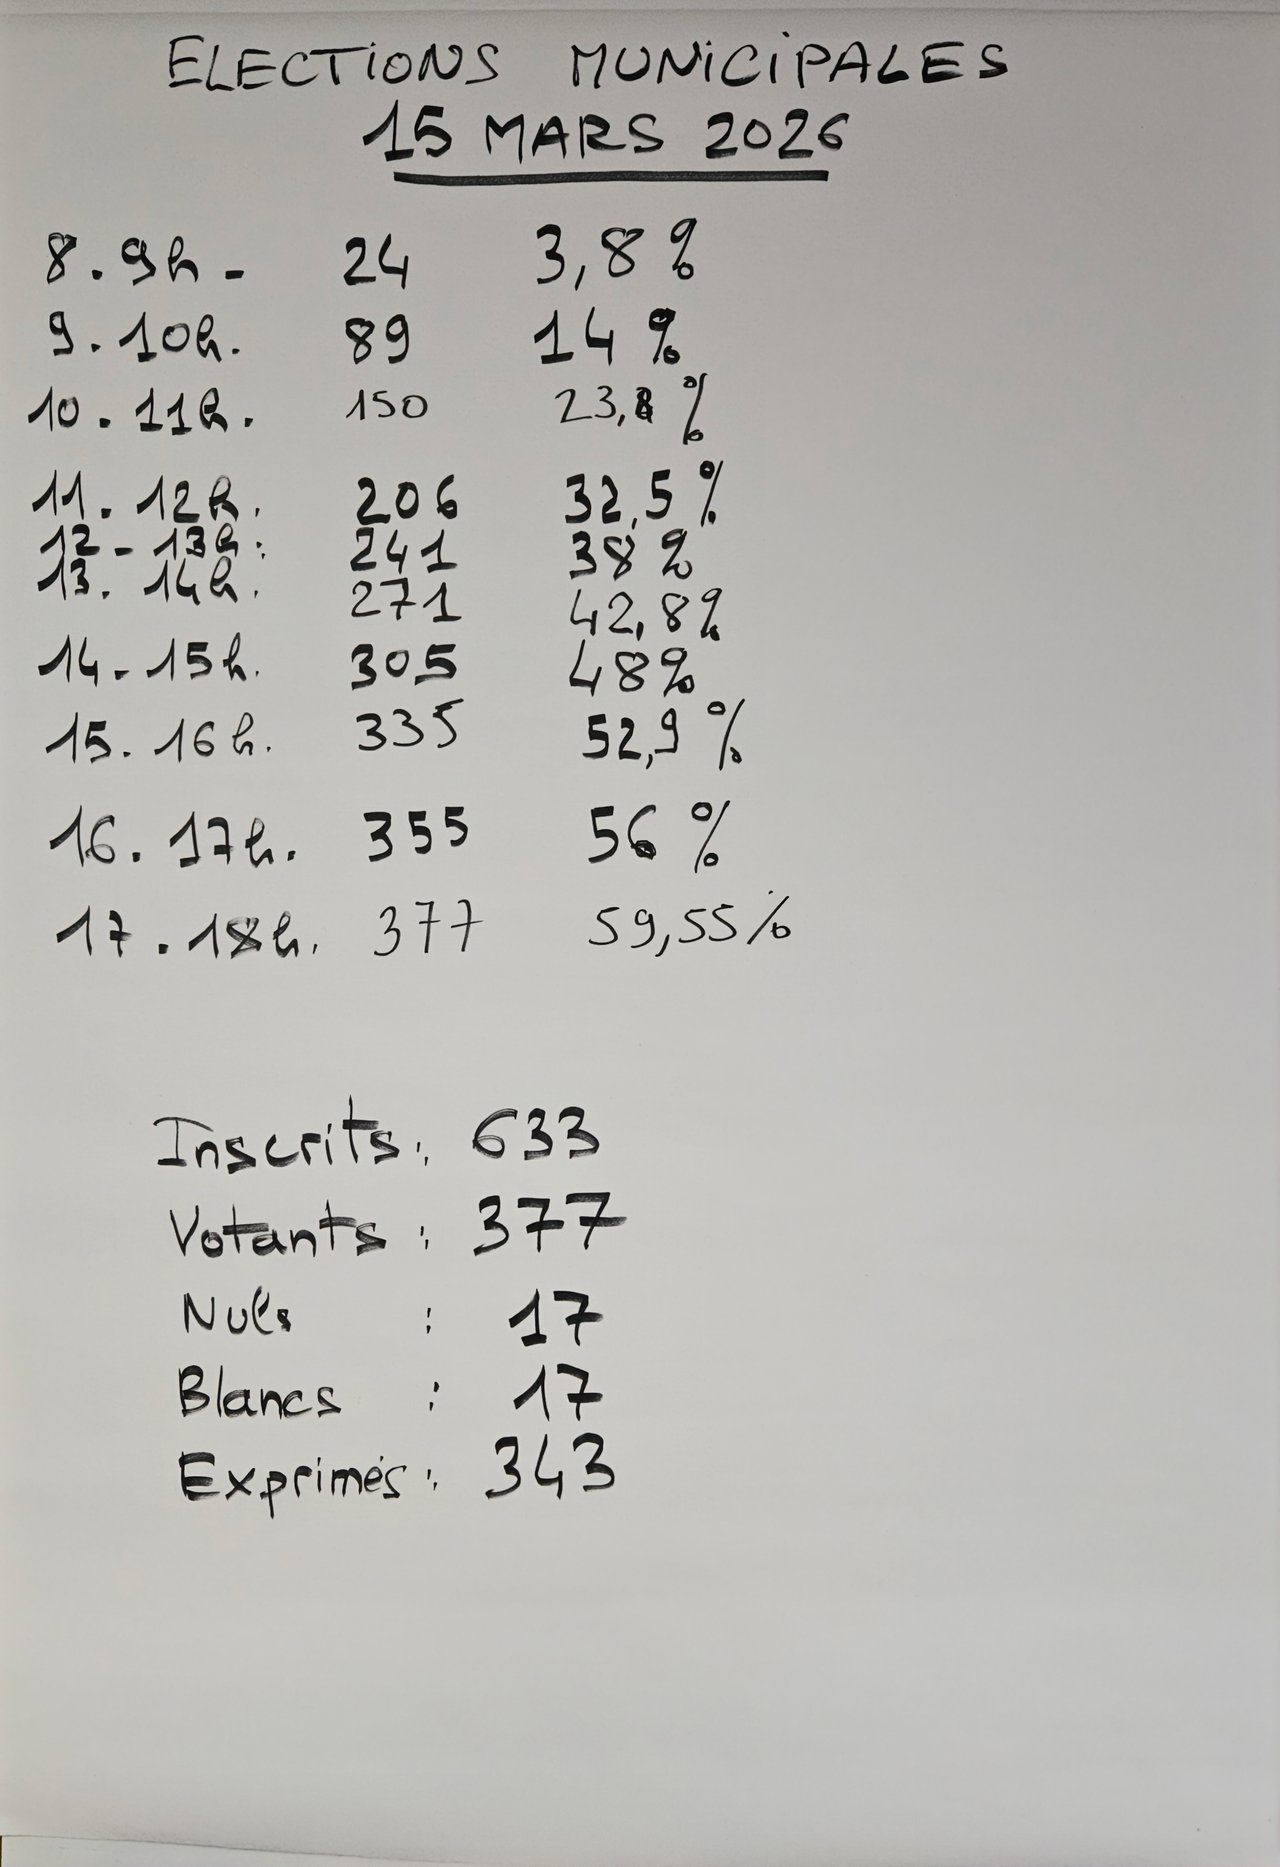 ELECTIONS MUNICIPALES
15 MARS 2026
8.9h - 24 3,8 %
9.10h. 89 14 %
10.11h. 150 %
11.12h. 206 32,5 %
12-13h: 241 38 %
13.14h. 271 42,8 %
14-15h. 305 48 %
15.16h. 335 52,9 %
16.17h. 355 56 %
17.18h. 377 59,55 %
Inscrits: 633
Votants : 377
Nuls : 17
Blancs : 17
Exprimés : 343